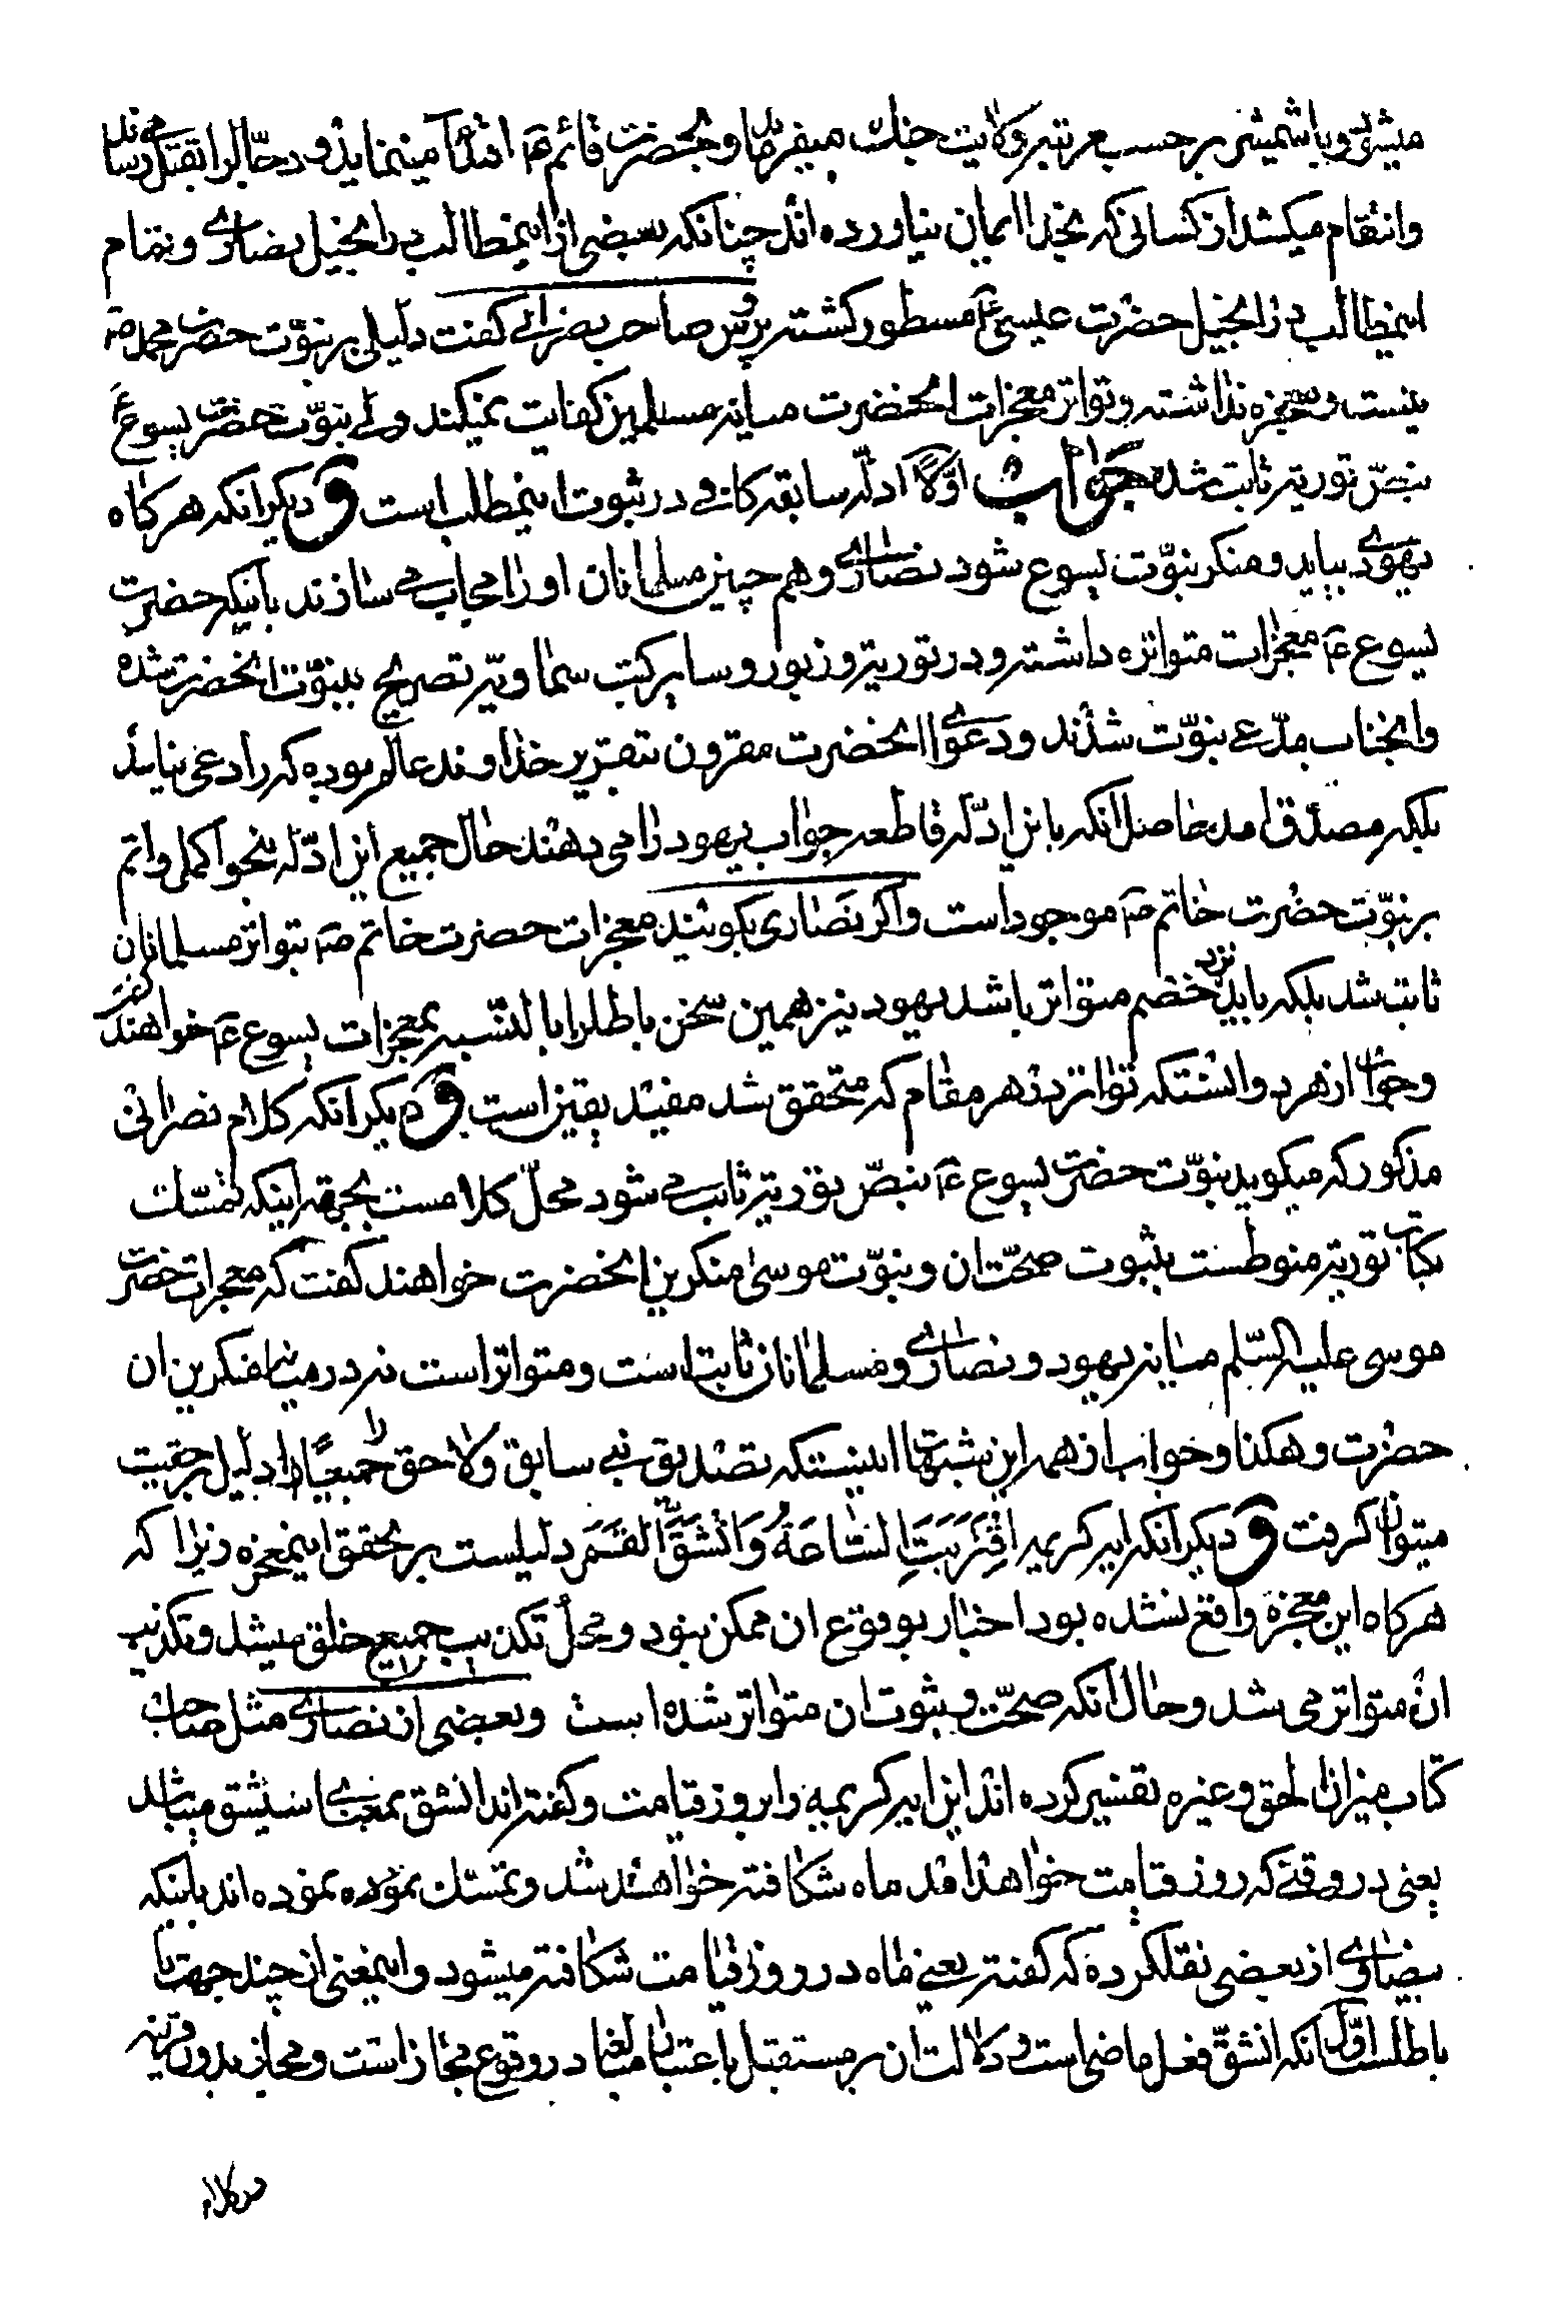 میشود و با شمشیر بر حسب مرتبه ولایت جنك میفرماید و بحضرت قائم ع اقتدا مینماید و دجال را بقتل میرساند
و انتقام میکشد از کسانی که بخدا ایمان نیاورده اند چنانکه بعضی از اینمطالب در انجیل نصاری و تمام
اینمطالب در انجیل حضرت عیسی ع مسطور گشته پس صاحب نصرانی گفت دلیلی بر نبوّت حضرت محمد ص
نیست و معجزه نداشته و تواتر معجزات انحضرت میانه مسلمین کفایت نمیکند ولی نبوّت حضرت یسوع ع
بنصّ توریة ثابت شد جواب اوّلا ادلّه سابقه کافی در ثبوت اینمطلب است و دیگر انکه هرگاه
یهودی بیاید و منکر نبوّت یسوع شود نصاری و هم چنین مسلمانان او را مجاب می سازند باینکه حضرت
یسوع ع معجزات متواتره داشته و در توریة و زبور و سایر کتب سماویّه تصریح بنبوّت انحضرت شده
و انجناب مدّعی نبوّت شدند و دعوای انحضرت مقرون بتقریر خداوند عالم بوده که رادعی نیامد
بلکه مصدق امد حاصل انکه باین ادلّه قاطعه جواب یهود را می دهند حال جمیع این ادلّه بنحو اکمل و اتم
بر نبوّت حضرت خاتم ص موجود است و اگر نصاری بگویند معجزات حضرت خاتم ص بتواتر مسلمانان
ثابت شد بلکه باید نزد خصم متواتر باشد یهود نیز همین سخن باطل را بالنّسبه بمعجزات یسوع ع خواهند گفت
و جواب از هر دو انستکه تواتر در هر مقام که متحقق شد مفید یقین است و دیگر انکه کلام نصرانی
مذکور که میگوید نبوّت حضرت یسوع ع بنصّ توریة ثابت می شود محلّ کلامست بجهة اینکه تمسّك
بکتاب توریة منوطست بثبوت صحّت ان و نبوّت موسی منکرین انحضرت خواهند گفت که معجزات حضرت
موسی علیه السّلم میانه یهود و نصاری و مسلمانان ثابت است و متواتر است نه در میانه منکرین ان
حضرت و هکذا و جواب از همه این شبهات اینستکه تصدیق نبی سابق و لاحق جمیعا را دلیل بر حقیت
میتوان گرفت و دیگر انکه ایه کریمه اقْتَرَبَتِ السَّاعَةُ وَانْشَقَّ الْقَمَر دلیلست بر تحقق اینمعجزه زیرا که
هرگاه این معجزه واقع نشده بود اخبار بوقوع ان ممکن نبود و محل تکذیب جمیع خلق میشد و تکذیب
ان متواتر می شد و حال انکه صحّت و ثبوت ان متواتر شده است و بعضی از نصاری مثل صاحب
کتاب میزان الحق و غیره تفسیر کرده اند این ایه کریمه را بروز قیامت و گفته اند انشق بمعنی سینشق میباشد
یعنی در وقتی که روز قیامت خواهد امد ماه شکافته خواهد شد و تمسّك نموده اند باینکه
بیضاوی از بعضی نقل کرده که گفته یعنی ماه در روز قیامت شکافته میشود و اینمعنی از چند جهت
باطلست اوّل انکه انشقّ فعل ماضی است و دلالت ان بر مستقبل باعتبار در وقوع مجاز است و مجاز بدون قرینه
در کلام